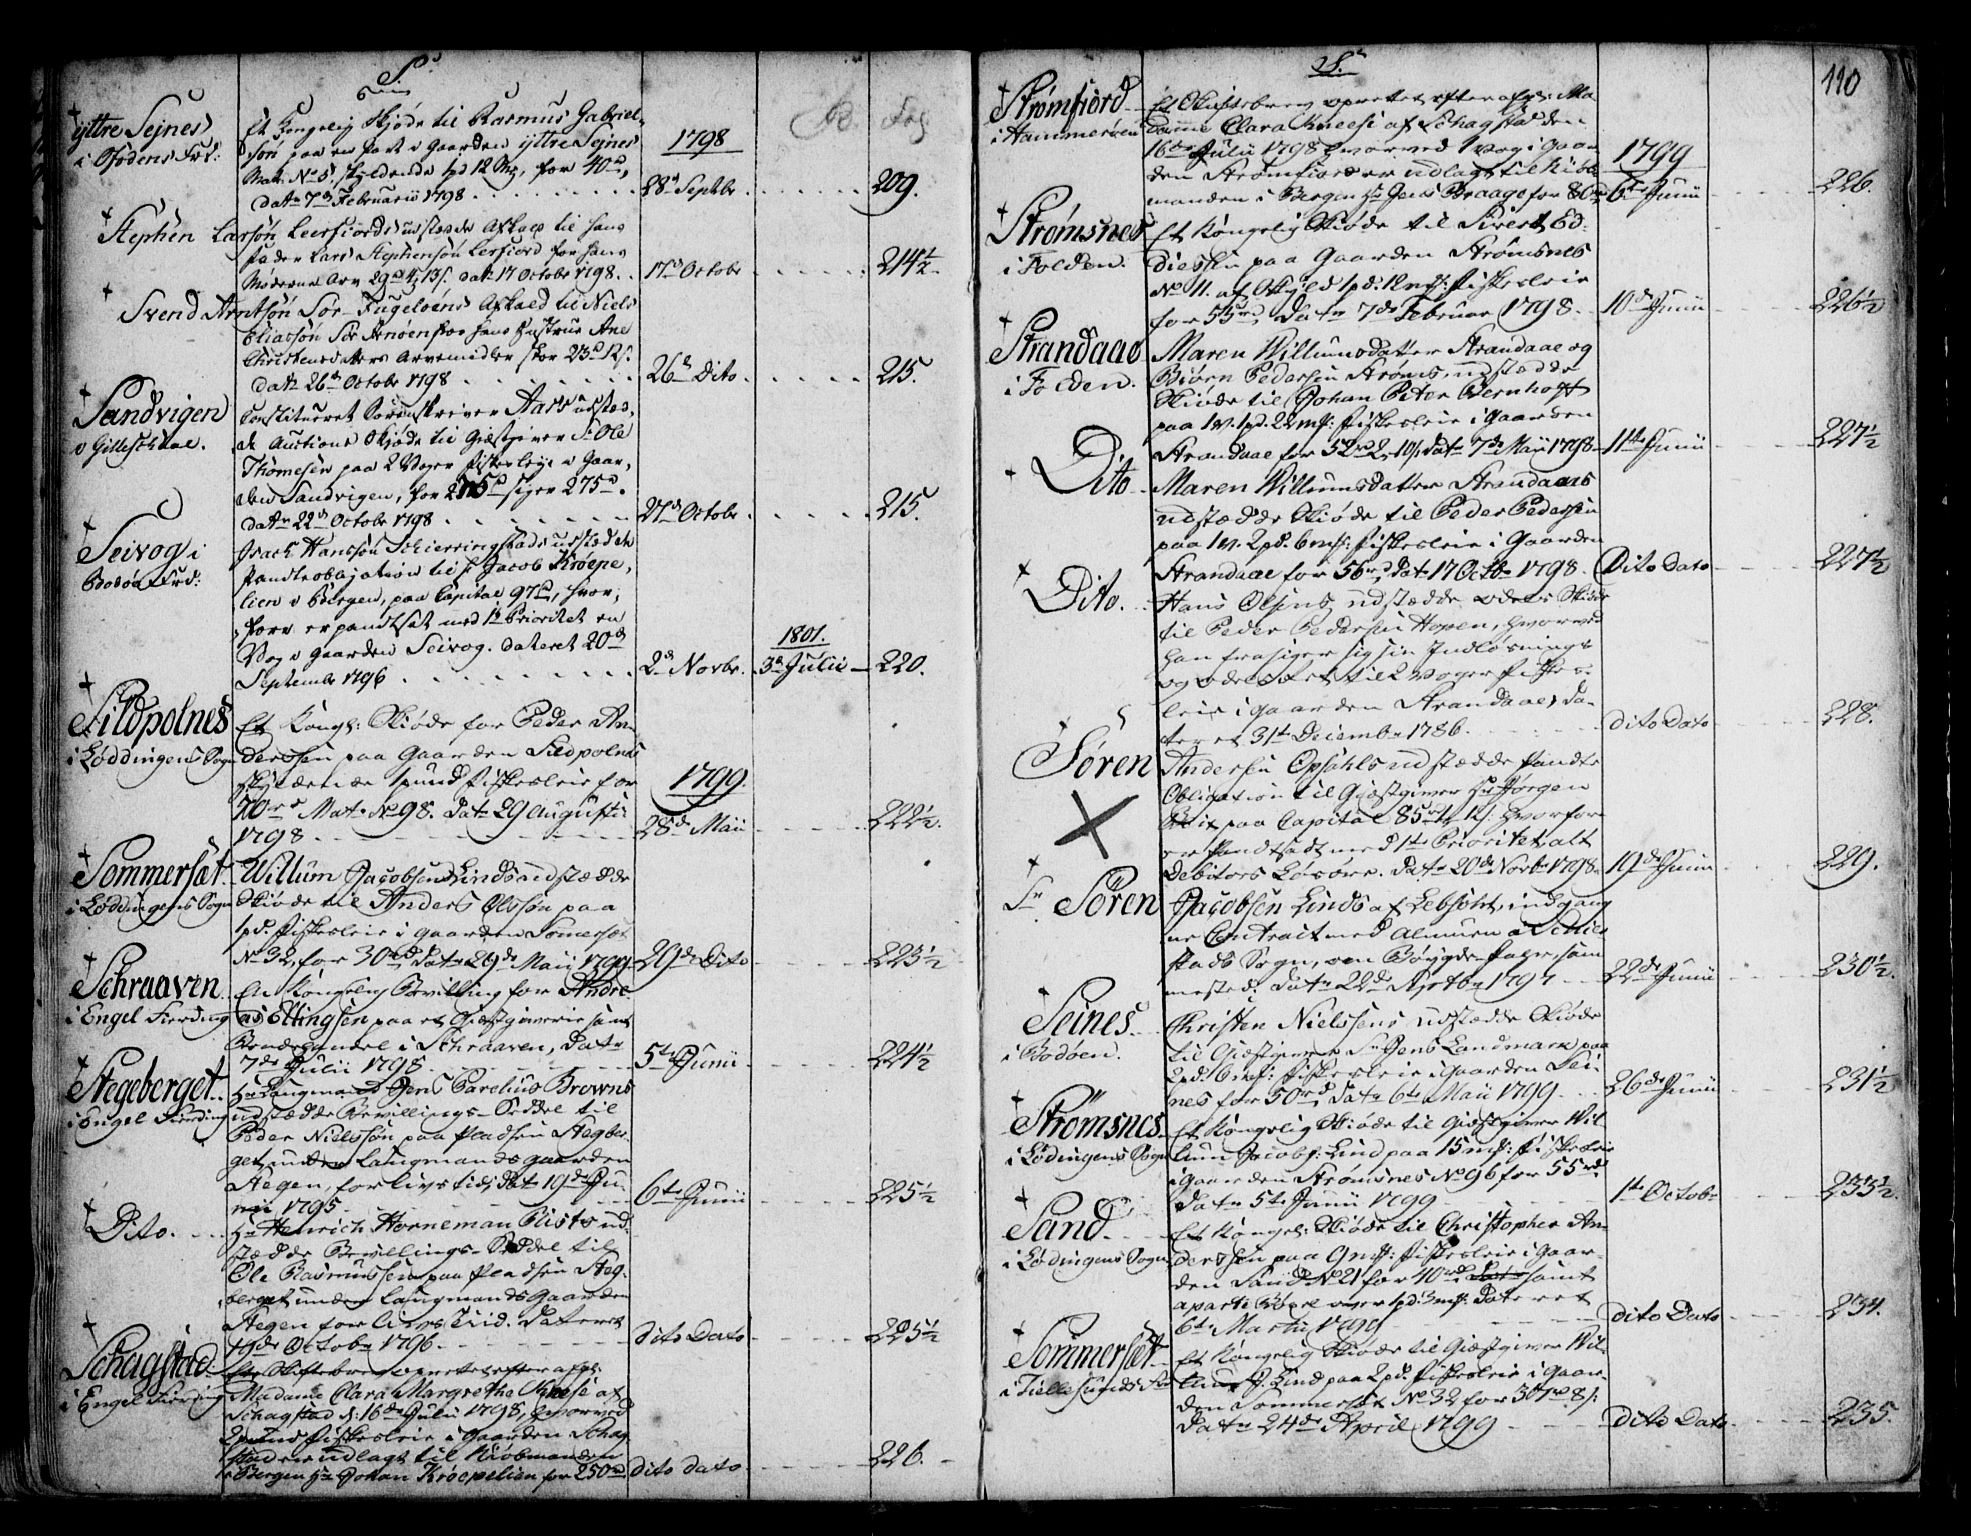 S.
Fol.
yttre Seines
i Ofodens Frd:
Et Kongelig Skjøde til Rasmus Gabriel-
søn paa en part i Gaarden yttre Seines
Matr: No 5, skyldende 1pd 12 Mrk, for 40rd,
dat. 7de Februarii 1798
1798
28d Septbr.
209.
Stephen Larsøn Leerfiords udstædde Afkald til hans
fader Lars Stephensøn Lerfiord for hans
Møderne Arv 29rd 4 13s. dat. 17 October 1798.
17d Octobr
214½
Svend Arntsøn Sør-Fugeløens Afkald til Niels
Eliassøn Sør Arnøen for hans Hustrue Ane
Christensdatters Arvemidler stor 23rd 12s.
dat. 26de Octobr 1798
26d Dito
215.
Sandvigen
i Gilleschaal.
Constitueret Sorenskriver Aars udstæd-
de Auctions Skjøde til Giæstgiver Sr. Ole
Thomesen paa 2 Voger fiskeleje i Gaar-
den Sandvigen, for 275rd siger 275rd.
dat. 22de Octobr 1798
27d Octobr
215.
Seivog i
Bodøe Frd:
Isach Hanssøn Schierringstads udstædde
Pandteobligation til Sr. Jacob Krøepe-
lien i Bergen, paa Capital 97rd, hvor-
for er pandtsat med 1te Prioritet en
Vog i Gaarden Seivog. dateret 20d
September 1796
2d Novbr.
1801.
3d Julii
220.
Sildpolnes
i Løddingens Sogn
Et Kongl: Skiøde for Peder An-
derssen paa Gaarden Sildpolnes
skyldende 1pund fiskesleie for
70rd Matr. No 98. Dat. 29 Augusti
1798
1799.
28d Maii
222½.
Sommersæt
i Løddingens Sogn
Willum Jacobsen Linds udstædde
Skiøde til Anders Olssøn paa
1pd. fiskesleie i gaarden Somersæt
No 32, for 30rd, Dat. 29de Maii 1799
29de Dito
223½
Schraaven
i Engel Fierding
En Kongelig Bevilling for Andre-
as Ellingsen paa et Giæstgiverie samt
Kræmhandel i Schraaven, Dat.
7de Julii 1798
5te Junii
224½
Stegeberget
i Engel Fierding
Hr. Laugmand Jens Parelius Browns
udstædde Bevillings-Seddel til
Peder Nielssøn paa Pladsen Stegber-
get under Laugmandsgaarden
Stegen, for livs tid, Dat. 19de Ju-
nii 1795
6te Junii
225½
Dito.
Hr. Henrich Horneman Rists ud-
stædde Bevillings-Seddel til
Ole Rasmussen paa Pladsen Steg-
berget under Laugmands Gaarden
Stegen for Livs Tiid. Dateret
19de Octobr 1796
dito Dato
225½
Schagstad
i Engel Fierding
Et Skiftebrev oprettet efter afg:
Madame Clara Margrethe Kneese af
Schagstad d: 16de Julii 1798, hvorved
2pund fiskesleie i Gaarden Schag-
stad er udlagt til Kiøbmanden
i Bergen Hr. Johan Krøepelien for 250rd
dito dato
226.
S.
110
Strømfiord
i Hammerøen
Et Skiftebrev oprettet efter afg: Ma-
dame Clara Kneese af Schagstad den
16de Julii 1798 hvorved 1 vog i Gaar-
den Strømfiord er udlagt til Kiøb-
manden i Bergen Hr. Jens Braage for 80rd
1799
6te Junii
226.
Strømsnes
i Folden.
Et Kongelig Skiøde til Sivert Ed-
dissen paa Gaarden Strømsnes
No 11. af Skyld 1pd. 12mk: fiskesleie
for 55rd, Dat. 7de Februar 1798.
10de Junii
226½
Strandaae
i Folden.
Maren Willumsdatter Strandaae og
Biørn Pedersen Strøms udstædde
Skiøde til Johan Peter Bernhoft
paa 1w. 1pd. 22mk: fiskesleie i Gaarden
Strandaae for 52rd 2. 10s. Dat. 7de Maii 1798
11te Junii
227½
Dito
Maren Willumsdatter Strandaaes
udstædde Skiøde til Peder Pedersen
paa 1w. 2pd. 6mk: fiskesleie i Gaarden
Strandaae for 56rd, Dat. 17 Octbr. 1798.
Dito Dato
227½
Dito.
Hans Olsens udstædde odels Skiøde
til Peder Pedersen Hopen, hvorved
han frasiger sig sin Indløsnings
og odels Ret til 2 voger fiskes-
leie i gaarden Strandaae, da-
teret 31te Decembr 1786.
dito Dato
228.
Søren
Andersen Opsahls udstædde Pandte
Obligation til Giæstgiver Hr. Jørgen
paa Capital 85rd 1 12s: hvorfor
er Pandtsadt med 1te Prioritet alt
Debitors Løsøre. Dat. 20de Novbr. 1798
19de Junii
229.
Sr. Søren
Jacobsen Linds af Lebsøe, indgang-
ne Contract med Almuen i Schier-
stads Sogn, om Bøygde-farer sam-
mested. Dat. 22de Septbr. 1797
22de Junii
230½.
Seines
i Bodøen.
Christen Nielssens udstædde Skiøde
til Giæstgiver Sr. Jens Landmark paa
2pd. 6mk: fiskesleie i Gaarden Sei-
nes for 50rd, Dat. 6te Maii 1799.
26de Junii
231½
Strømsnes
i Lødingens Sogn
Et Kongelig Skiøde til Giæstgiver Wil-
lum Jacobs: Lind paa 15mk: fiskesleie
i gaarden Strømsnes No 96 for 55rd
Dat. 5te Junii 1799
1te Octobr
233½.
Sand
i Lødingens Sogn
Et Kongel: Skiøde til Christopher An-
dersen paa 9mk: fiskesleie i Gaar-
den Sand No 21 for 40rd samt
aparte Bøxel over 1pd. 3mk: Dateret
6te Martii 1799
dito Dato
234.
Sommersæt
i Tiellesunds
Et Kongelig Skiøde til Giæstgiver Wil-
lum J. Lind paa 2pd. fiskesleie i Gaar-
den Sommersæt No 32 for 30rd 8s:
Dat. 24de April 1799
dito Dato
235.